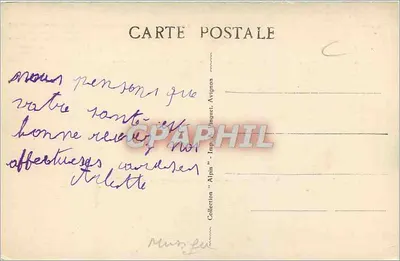 CARTE POSTALE
C
nous pensons que
votre santé est
bonne recevez nos
affectueuses
Arlette
CPAPHIL
Collection "Alpin" - Imp. Avignon